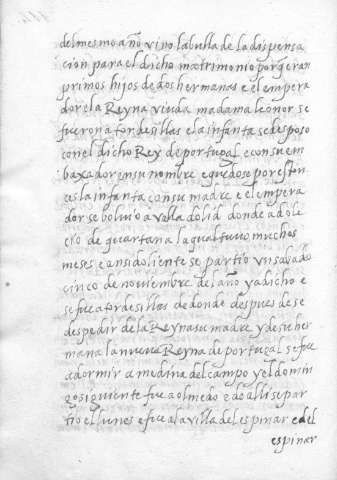 del mesmo año vino la bulla de la dispensa
cion para el dicho matrimonio porq̃ eran
primos hijos de dos hermanas e el empera
dor e la Reyna viuda madama leonor se
fueron a tordesillas e la infanta se desposo
con el dicho Rey de portugal e con su em
baxador in su nombre e quedose por eston
ces la infanta con su madre e el empera
dor se bolvio a valladolid donde adole
cio de quartana la qual tuvo muchos
meses e ansi doliente se partio un savado
cinco de noviembre del año ya dicho e
se fue a tordesillas de donde despues de se
despedir de la Reyna su madre y de su her
mana la nueva Reyna de portugal se fue
a dormir a medina del campo y el domin
go siguiente fue a olmedo e de alli se par
tio el lunes e fue a la villa del espinar e del
espinar